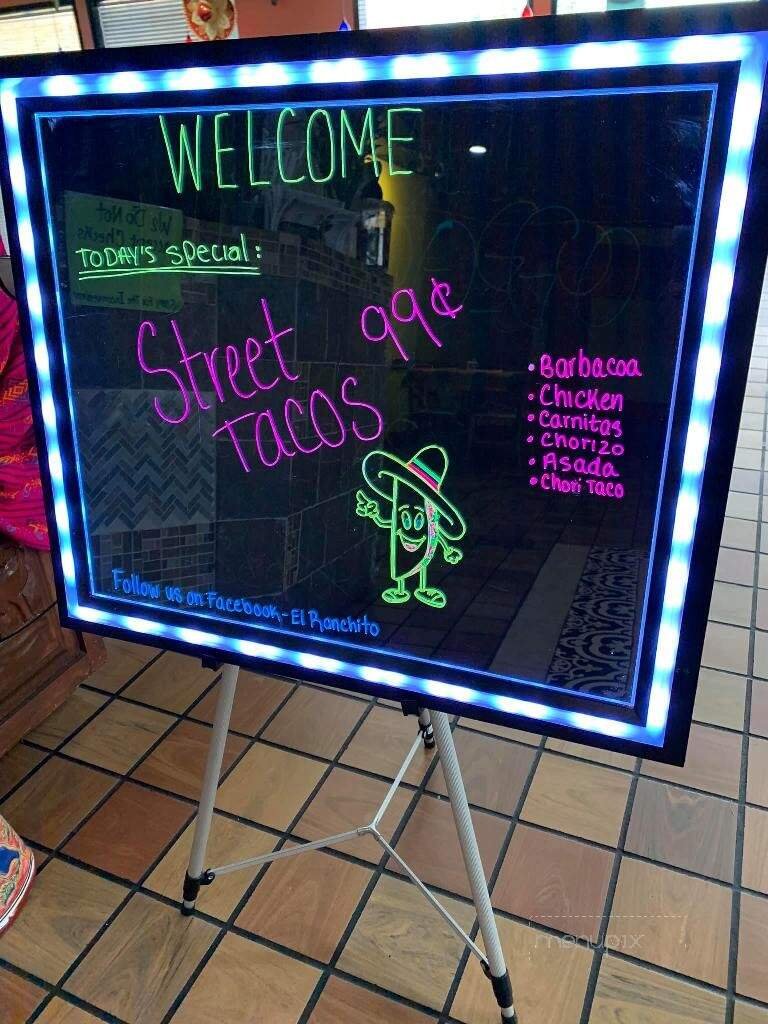 WELCOME
TODAY'S Special:
Street 99¢
TACOS
• Barbacoa
• Chicken
• Carnitas
• Chorizo
• Asada
• Chori Taco
Follow us on Facebook-El Ranchito
We Do Not
Checks
Sorry For The Inconvenience
menupix